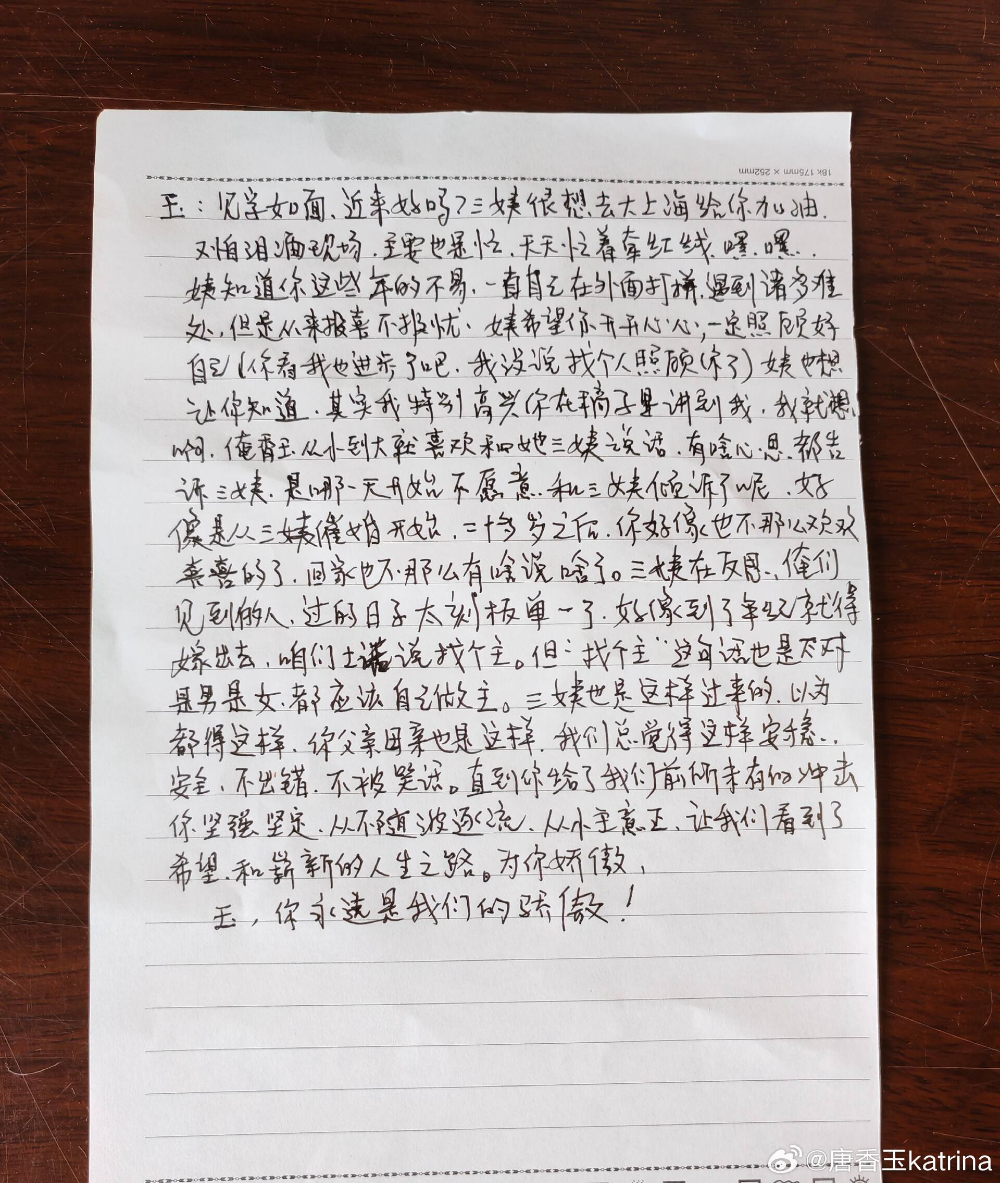 18K 175mm × 252mm
玉：见字如面，近来好吗？三姨很想去大上海给你加油，
又怕泪洒现场，主要也是忙，天天忙着牵红线，嘿，嘿，
姨知道你这些年的不易，一直自己在外面打拼，遇到诸多难
处，但是从来报喜不报忧，姨希望你开开心心，一定照顾好
自己（你看我也进步了吧，我没说找个人照顾你了）姨也想
让你知道，其实我特别高兴你在稿子里讲到我，我就想，
啊，俺香玉从小到大就喜欢和她三姨说话，有啥心思都告
诉三姨，是哪一天开始不愿意和三姨倾诉了呢，好
像是从三姨催婚开始，二十多岁之后，你好像也不那么欢欢
喜喜的了，回家也不那么有啥说啥了。三姨在反思，俺们
见到的人，过的日子太刻板单一了，好像到了年纪就得
嫁出去，咱们土话说找个主。但“找个主”这句话也是不对
是男是女都应该自己做主。三姨也是这样过来的，以为
都得这样，你父亲母亲也是这样，我们总觉得这样安稳，
安全，不出错，不被笑话。直到你给了我们前所未有的冲击
你坚强坚定，从不随波逐流，从小主意正，让我们看到了
希望，和崭新的人生之路。为你娇傲，
玉，你永远是我们的骄傲！
@唐香玉katrina